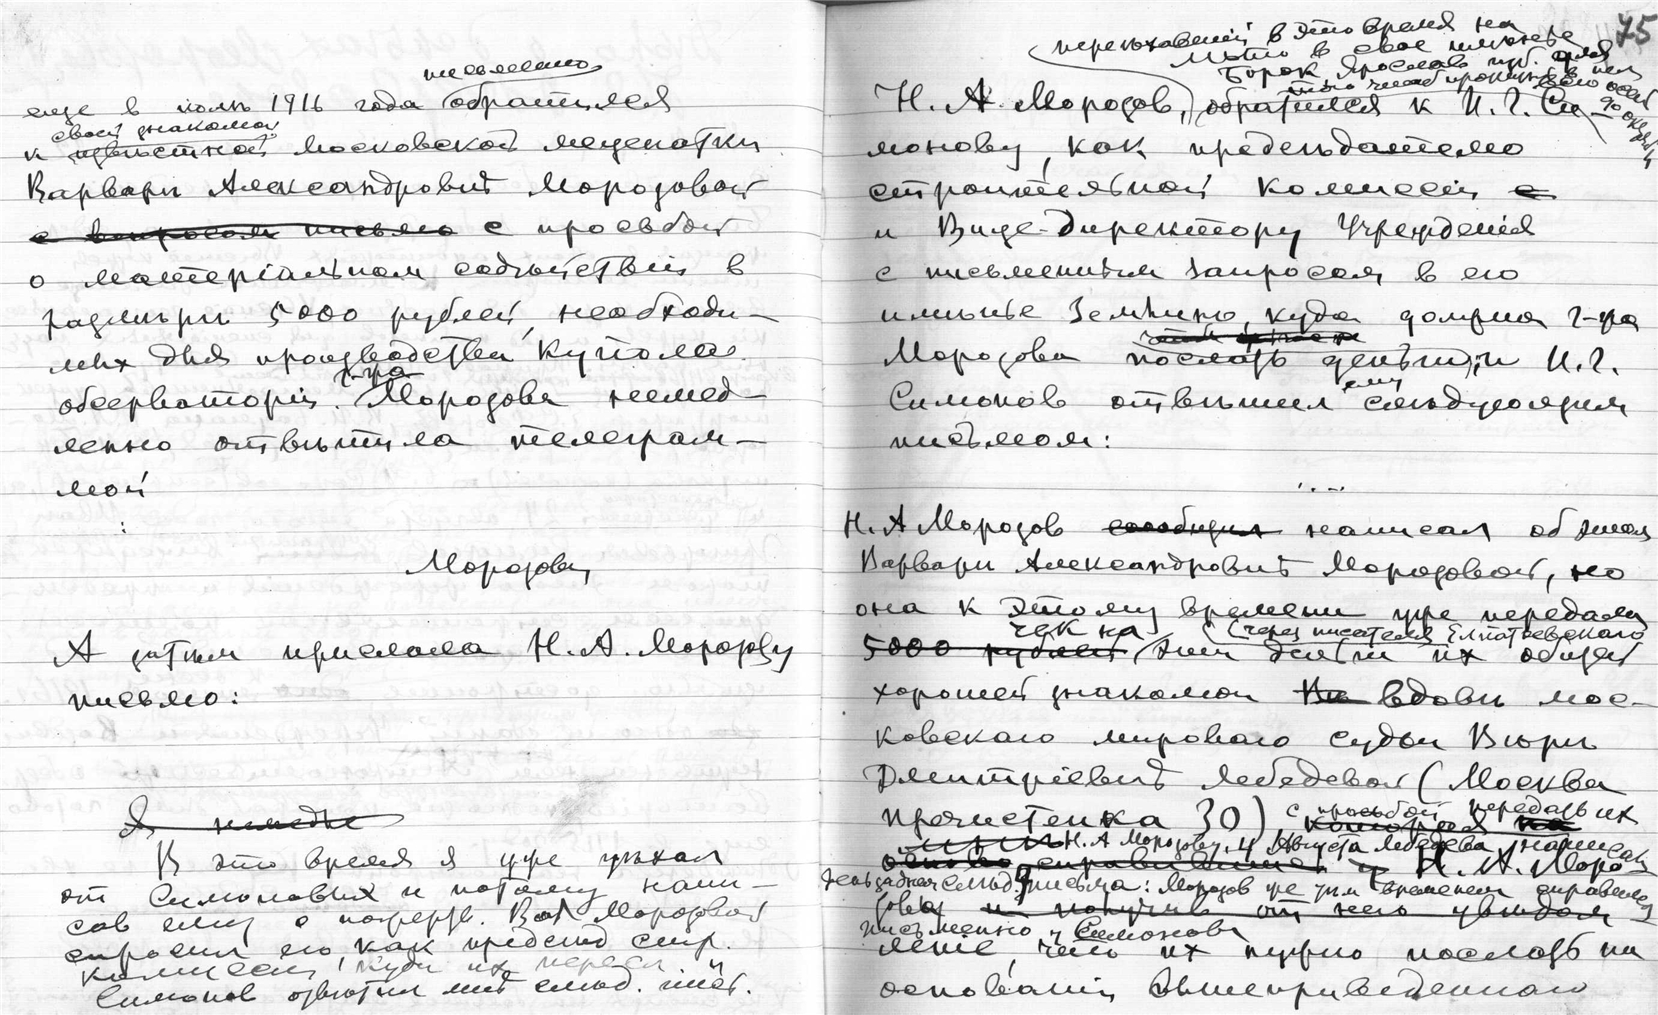 письменно
еще в іюлѣ 1916 года обратился
своей знакомой
к извѣстной московской меценатки
Варвары Александровнѣ Морозовой
с вопросом письмо с просьбой
о матеріальном содѣйствіи в
размѣрѣ 5000 рублей, необходи-
мых для производства купола
обсерваторіи. г-жа Морозова немед-
ленно отвѣтила телеграм-
мой
:
Морозовы
А затѣм прислала Н. А. Морозову
письмо:
Я немедле
В это время я уже уѣхал
от Симоновых и потому напи-
сав ему о пожертв. Вар. Морозовой
спросил его, как предсѣд. стр.
комиссіи, куда их перевести и
Симонов отвѣтил мнѣ слѣд. пис.
75
переѣхавшій в это время на
лѣто в свое имѣнье
Борок Ярослав. губ. для
Н. А. Морозов, обратился к И. Г. Си
до октября
монову, как предсѣдателю
строительной комиссіи с
и Вице-Директору Учрежденія
с письменным запросом в его
имѣнье Земпино, куда должна г-жа
Морозова послать деньги, и И. Г.
ему
Симонов отвѣтил слѣдующим
письмом:
. . .
Н. А Морозов сообщил написал об этом
Варвары Александровнѣ Морозовой, но
она к этому времени уже передала
чек на (через писателя Елпатьевскаго
5000 рублей эти деньги их общей
хорошей знакомой Ве вдовы мос-
ковскаго мирового судьи Вѣры
Дмитріевнѣ Лебедевой (Москва
Пречистенка 30) с просьбой передать их
Н. А Морозову. 4 Августа Лебедева написала
справившись у Н. А. Моро-
слѣд. письма: Морозов уже тѣм временем справился
зова и получив от него увѣдом
письменно у Симонова
леніе, чего их нужно послать на
основаніи вышеприведеннаго